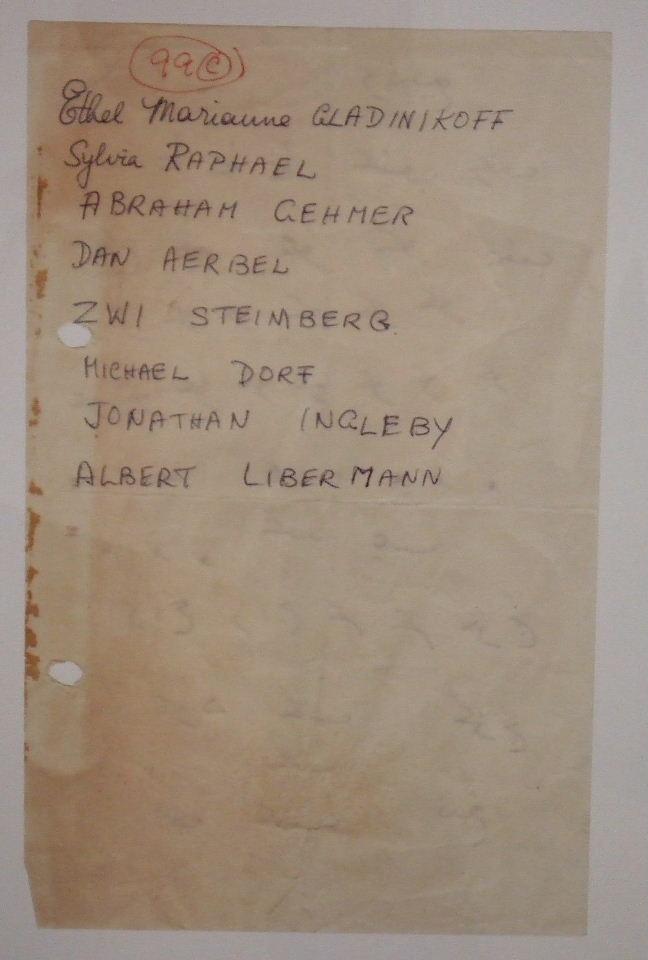 99 C
Ethel Marianne GLADINIKOFF
Sylvia RAPHAEL
ABRAHAM GEHMER
DAN AERBEL
ZWI STEIMBERG
MICHAEL DORF
JONATHAN INGLEBY
ALBERT LIBERMANN